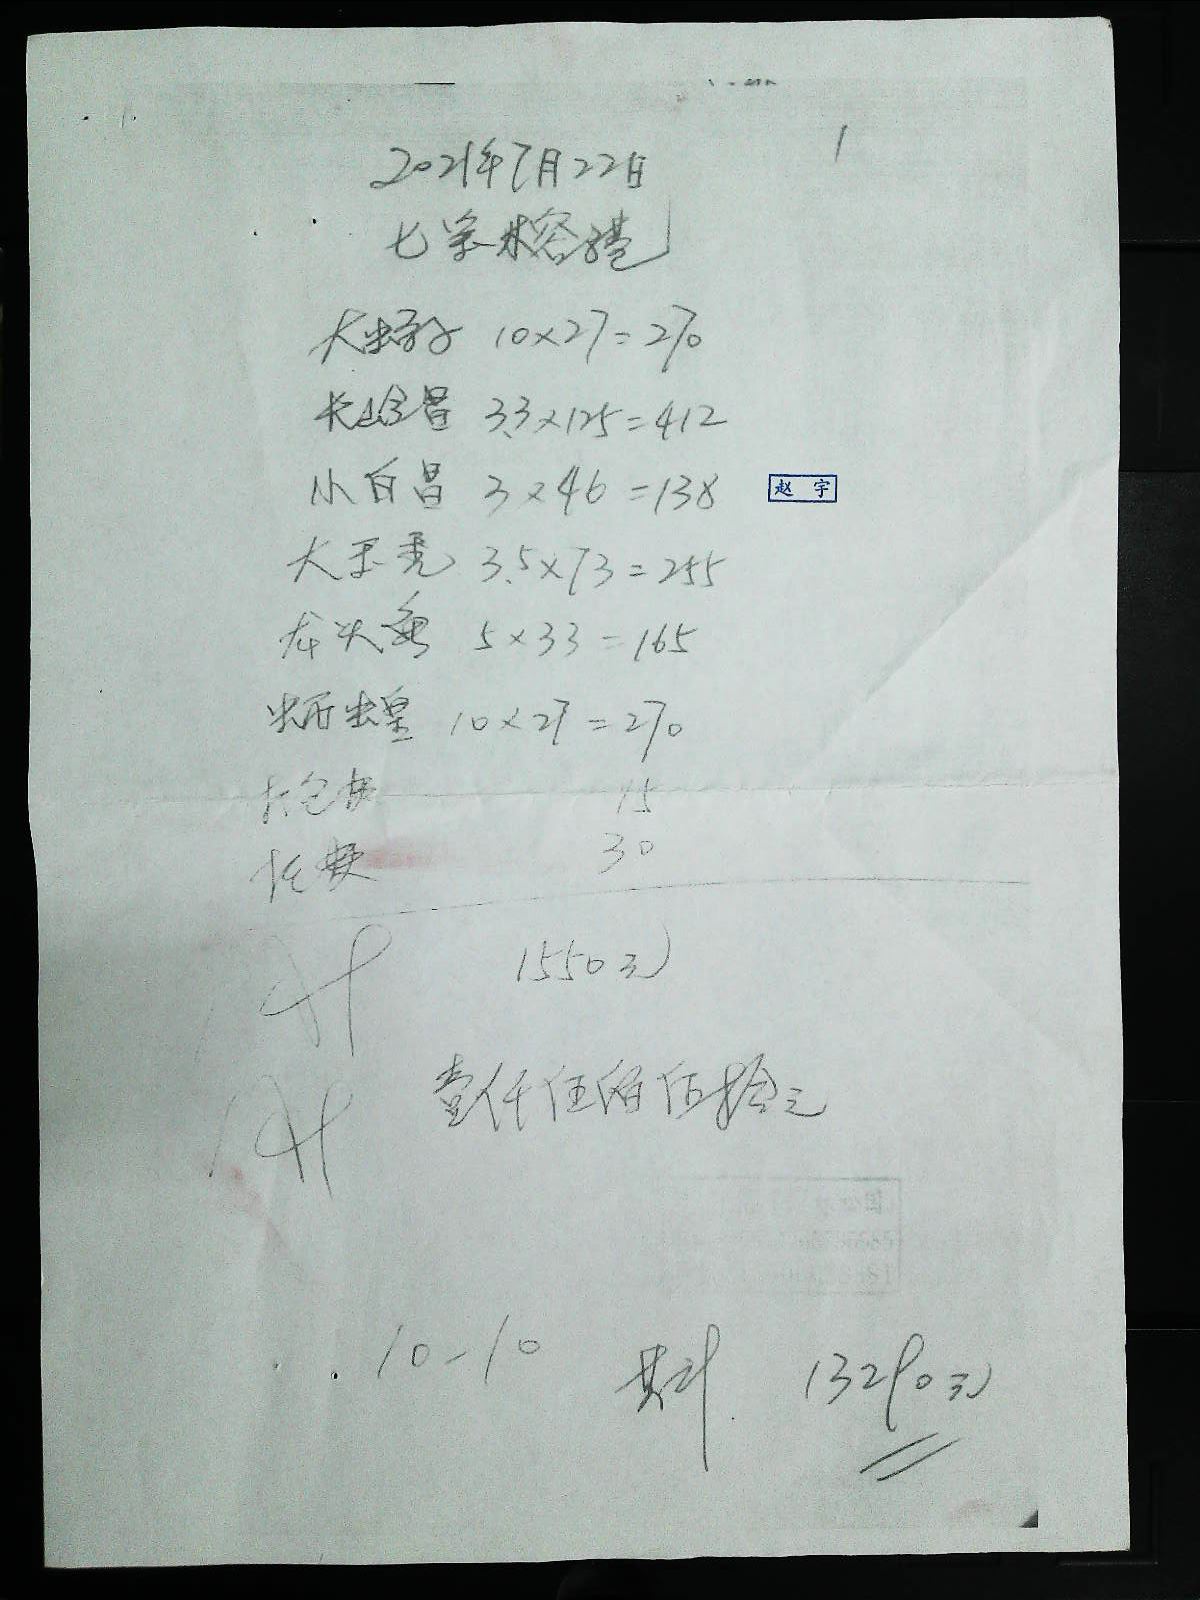 1
2021年7月22日
七
大虾子 10×27=270
长岭昌 3.3×125=412
小白昌 3×46=138
赵 宇
大玉秃 3.5×73=255
龙头鱼 5×33=165
蚜蝗 10×27=270
打包 15
费 30
1550元
壹仟伍佰伍拾元
10-10 共计 13290元